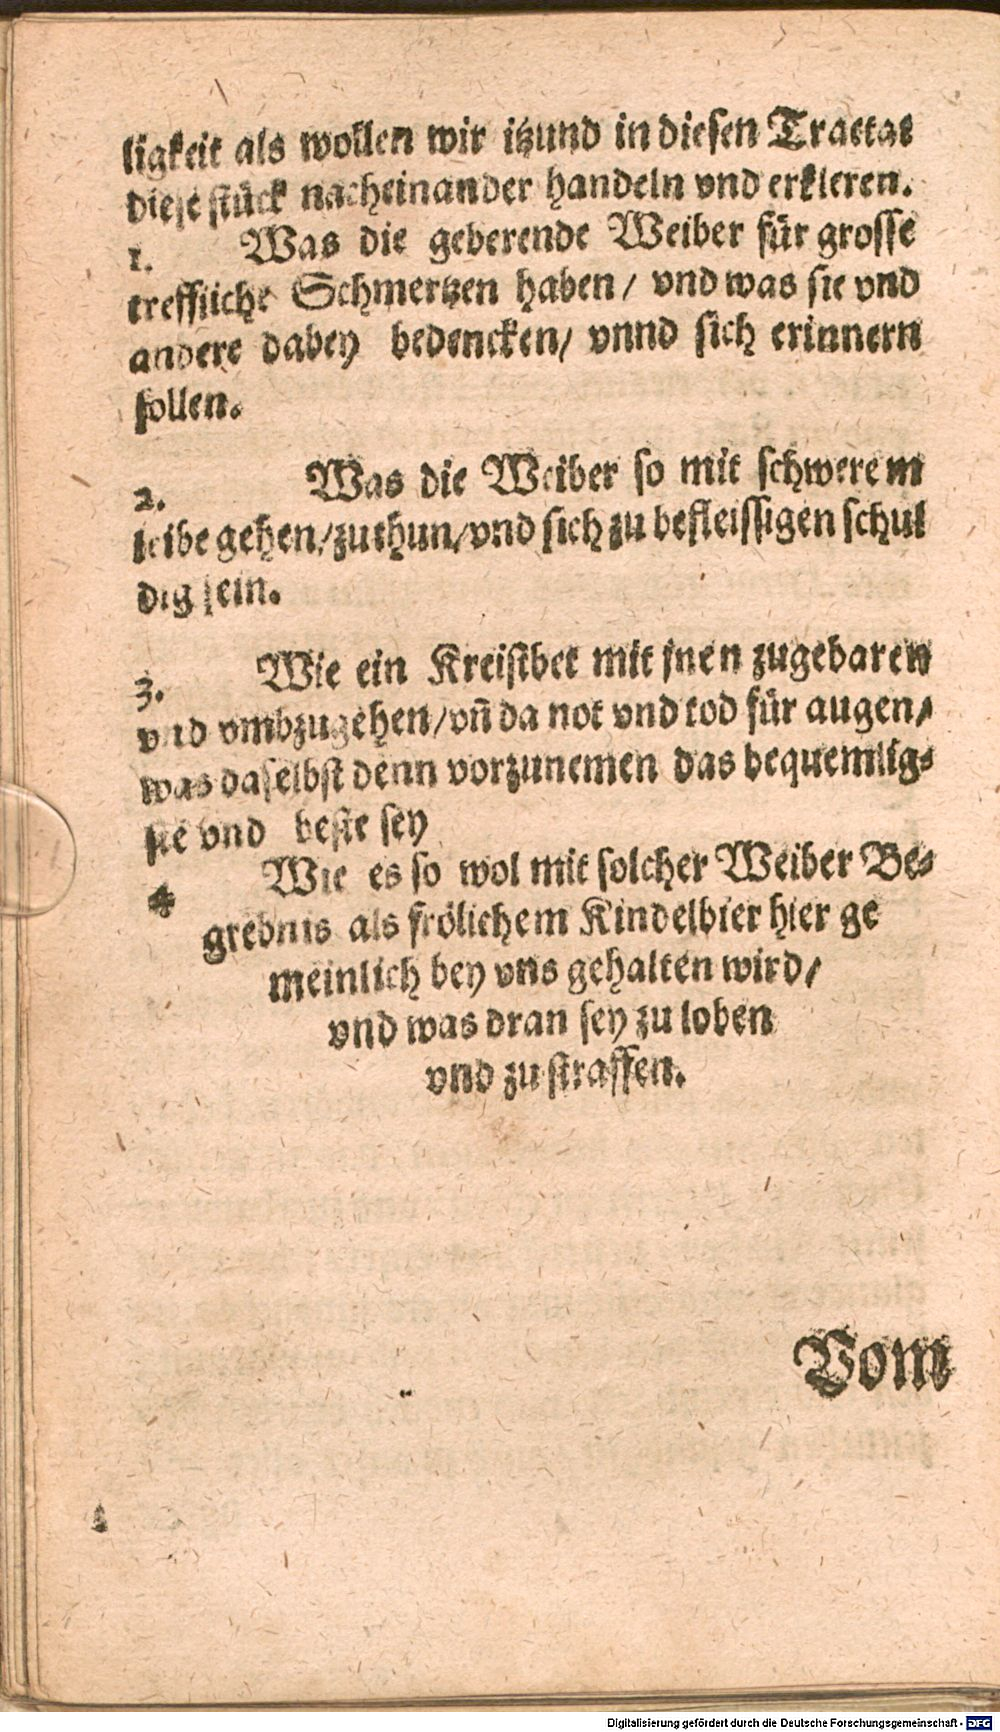 ligkeit als wollen wir itzund in diesen Tractat
diese stück nacheinander handeln vnd erkleren.
1. Was die geberende Weiber für grosse
treffliche Schmertzen haben / vnd was sie vnd
andere dabey bedencken / vnnd sich erinnern
sollen.
2. Was die Weiber so mit schwerem
leibe gehen / zuthun / vnd sich zu befleissigen schul
dig sein.
3. Wie ein Kreistbet mit jnen zugebaren
vnd vmbzugehen / vñ da not vnd tod für augen /
was daselbst denn vorzunemen das bequemlig-
ste vnd beste sey
4 Wie es so wol mit solcher Weiber Be-
grebnis als frölichem Kindelbier hier ge
meinlich bey vns gehalten wird /
vnd was dran sey zu loben
vnd zu straffen.
Vom
Digitalisierung gefördert durch die Deutsche Forschungsgemeinschaft - DFG